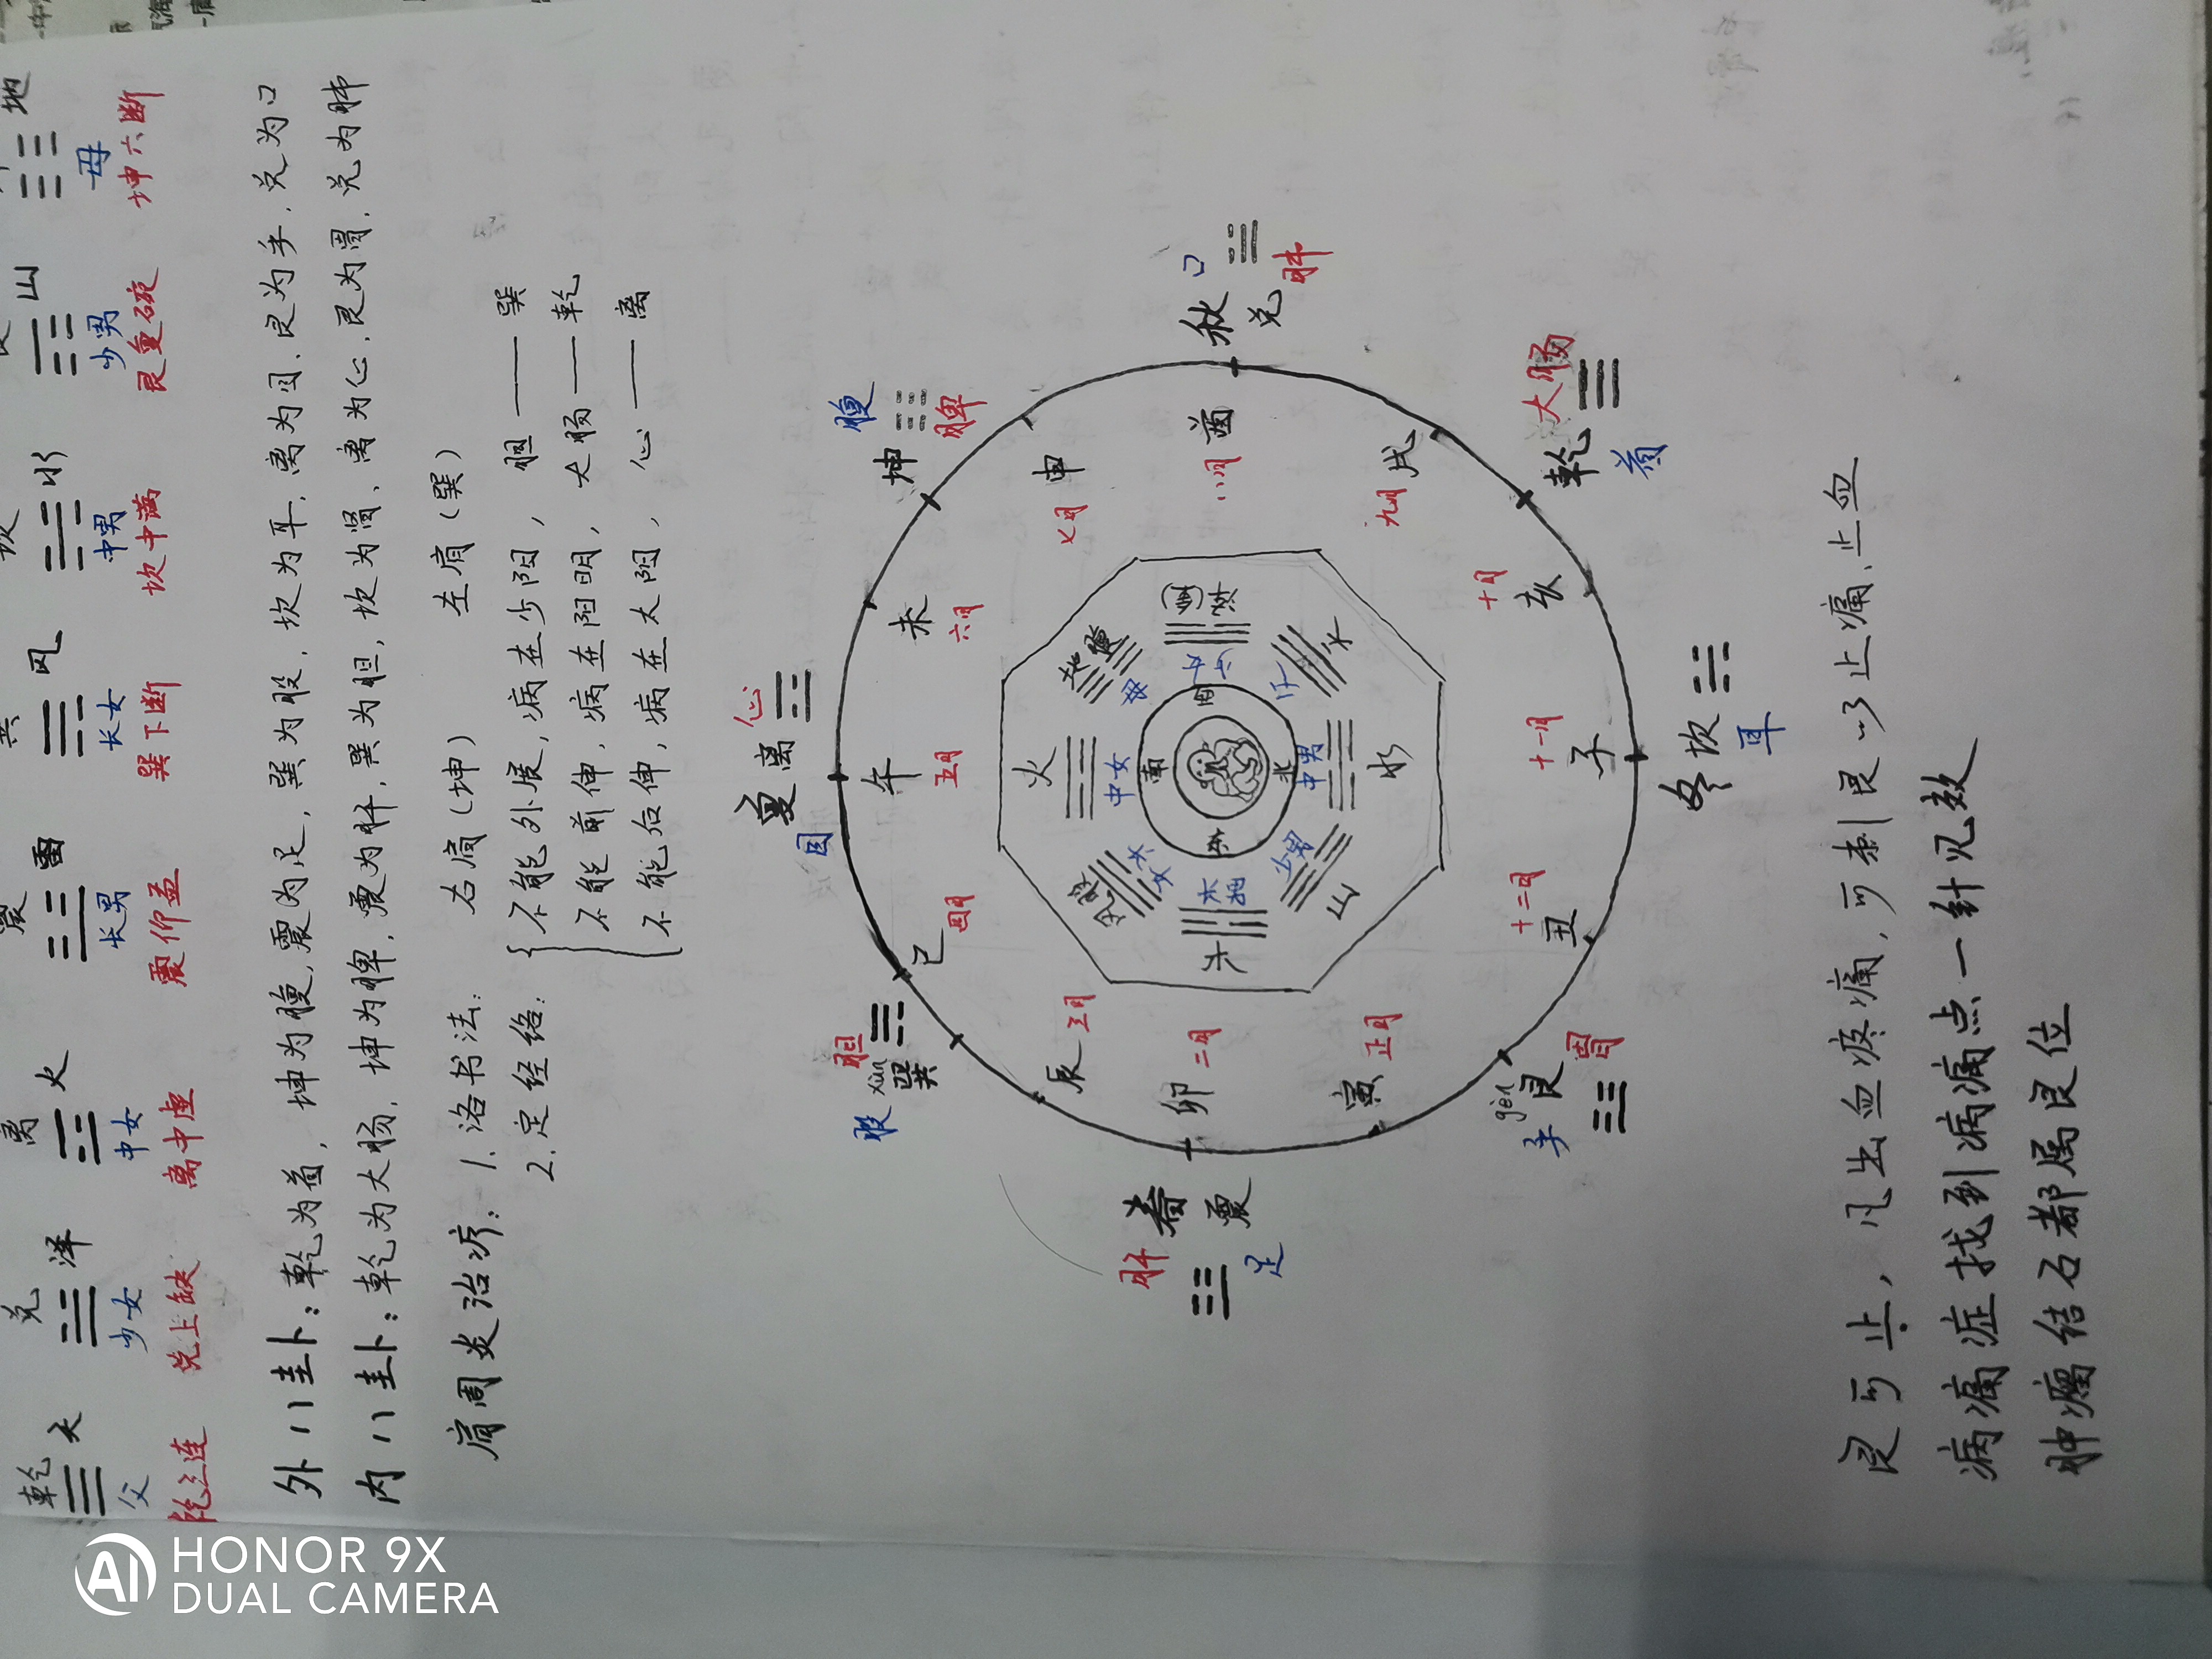 乾 兑 离 震 巽 坎 艮 坤
天 泽 火 雷 风 水 山 地
父 少女 中女 长男 长女 中男 少男 母
乾三连 兑上缺 离中虚 震仰盂 巽下断 坎中满 艮覆碗 坤六断
外八卦：乾为首，坤为腹，震为足，巽为股，坎为耳，离为目，艮为手，兑为口
内八卦：乾为大肠，坤为脾，震为肝，巽为胆，坎为肾，离为心，艮为胃，兑为肺
肩周炎治疗：1、洛书法： 右肩（坤） 左肩（巽）
2、定经络：{不能外展，病在少阳，胆——巽
不能前伸，病在阳明，大肠——乾
不能后伸，病在太阳，心——离
夏 离 心
目
巽 xùn 胆
股
坤 腹
脾
巳 午 未 申
四月 五月 六月 七月
辰 三月
火
中女
南
母
春 震 肝
足
卯 二月
木
东 西
秋 兑 口
肺
酉 八月
寅 正月
山 少男
北
中男
水
天
戌 九月
丑 十二月
子 十一月
亥 十月
艮 gèn 胃
手
乾 大肠
首
冬 坎
耳
艮可止，凡出血疼痛，可刺艮以止痛、止血
病痛症找到病痛点一针见效
肿瘤结石都属艮位
HONOR 9X
DUAL CAMERA
AI